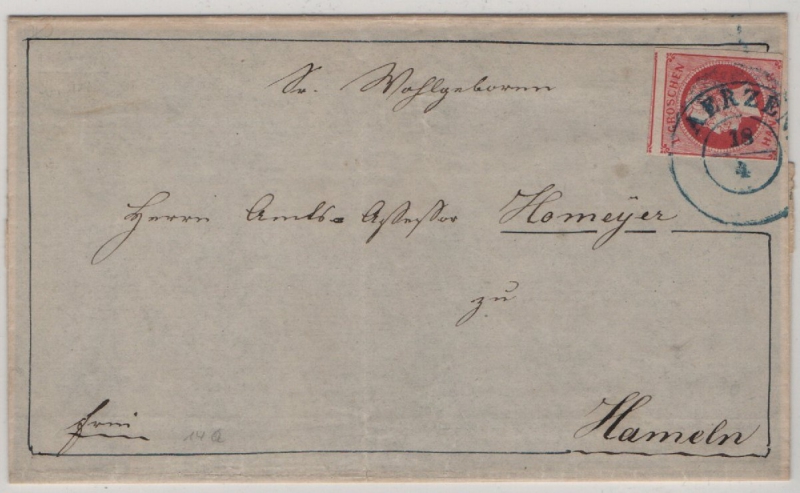 Sr. Wohlgeboren
1 GROSCHEN
AERZEN
18
4
Herrn Amts-Assessor Homeyer
zu
frei
14 a
Hameln